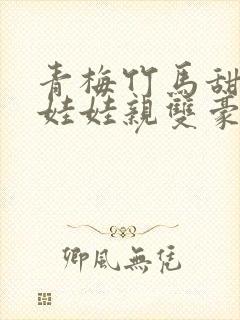 青梅竹馬甜
娃娃親雙豪
卿風無憑